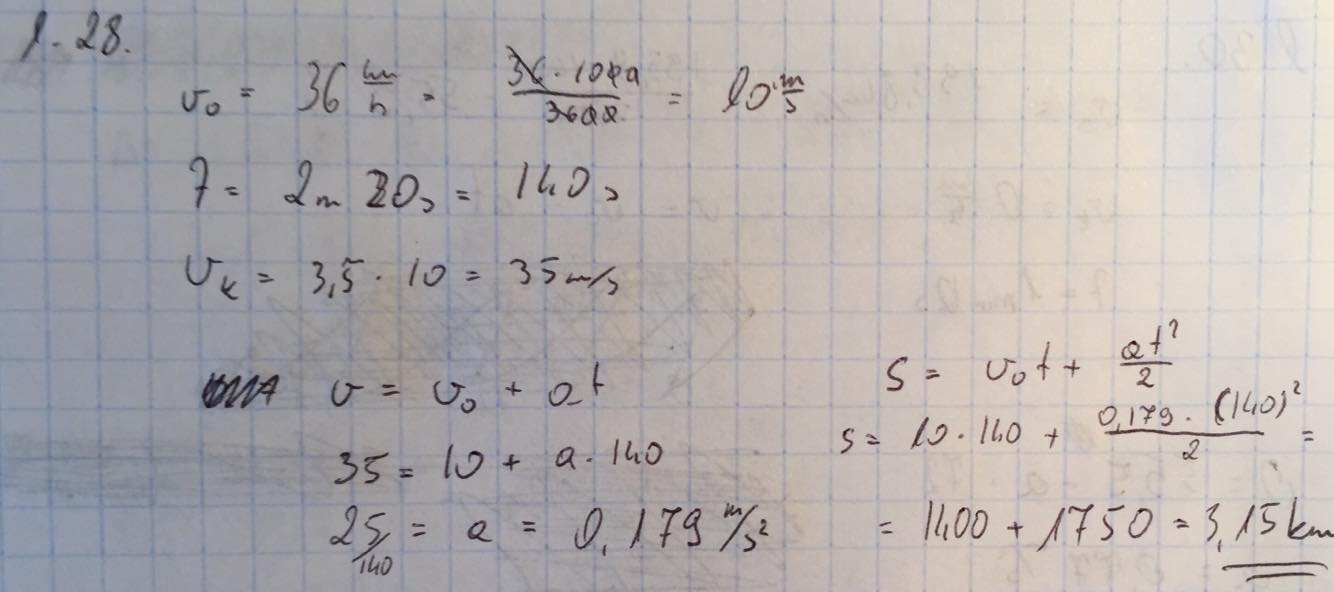 1.28.
v₀ = 36 km/h = 36·1000/3600 = 10 m/s
t = 2m 20s = 140s
vₖ = 3,5 · 10 = 35 m/s
v = v₀ + at
35 = 10 + a·140
25/140 = a = 0,179 m/s²
s = v₀t + at²/2
s = 10·140 + 0,179·(140)²/2 =
= 1400 + 1750 = 3,15km